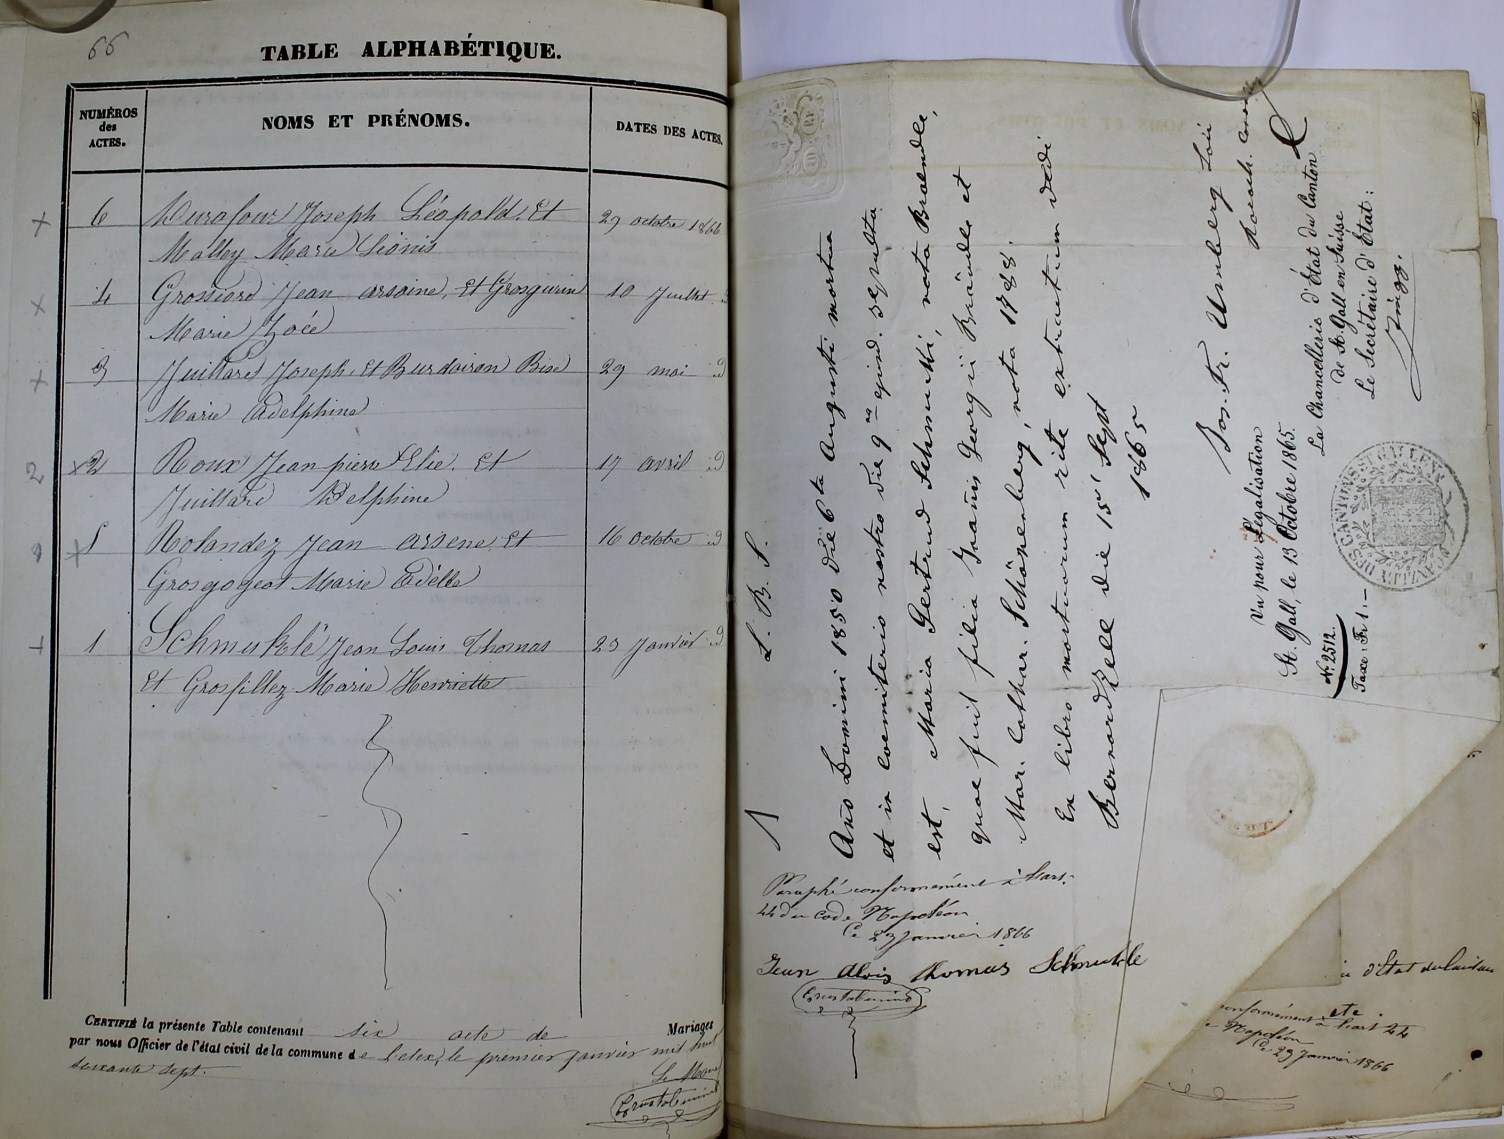 66
TABLE ALPHABÉTIQUE.
NUMÉROS
des
ACTES.
NOMS ET PRÉNOMS.
DATES DES ACTES.
6 Durafour Joseph Léopold. Et 29 octobre 1866
Malley Marie Léonis
4 Grossiord Jean arsaine, Et Grosgurin 10 Juillet
Marie Zoée
3 Juillard Joseph. Et Burdairon Bise 29 mai
Marie Adelphine
2 Roux Jean pierre Elie. Et 17 avril
Juillard Adelphine
5 Rolandez Jean arsene. Et 16 octobre
Grosgogeat Marie Adélle
1 Schmuklé Jean Louis Thomas 23 Janvier
Et Grosfillez Marie Henriette
CERTIFIÉ la présente Table contenant six acte de Mariages
par nous Officier de l'état civil de la commune de Lelex, le premier janvier mil huit
soixante sept.
Le Maire
L. B. S.
Año Domini 1850 die 6ta Augusti mortua
et in coemiterio nostro die 9na ejusd. sepulta
est, Maria Gertrud Schmukli, nata Braendle,
quae fuit filia Joañis Georgii Brändle et
Mar. Cathar. Schönenberg, nata 1788.
Ex libro mortuorum rite extractum dedi
Bernardzell die 15ā Sept
1865
Jos. Fr. Umberg
Vu pour Légalisation
St. Gall, le 13 Octobre 1865.
La Chancellerie d'État du Canton
de St. Gall en Suisse
Le Secrétaire d'État:
Zingg.
N: 2512.
Taxe: Fr 1.—
KANZLEI DES CANTONS ST. GALLEN
Paraphé conformément à l'art.
44 du code Napoléon
Ce 23 Janvier 1866
Jean Alois thomas Schmukle
d'Etat du Canton
etc.
conformément à l'art 44
Napoléon
Ce 23 Janvier 1866